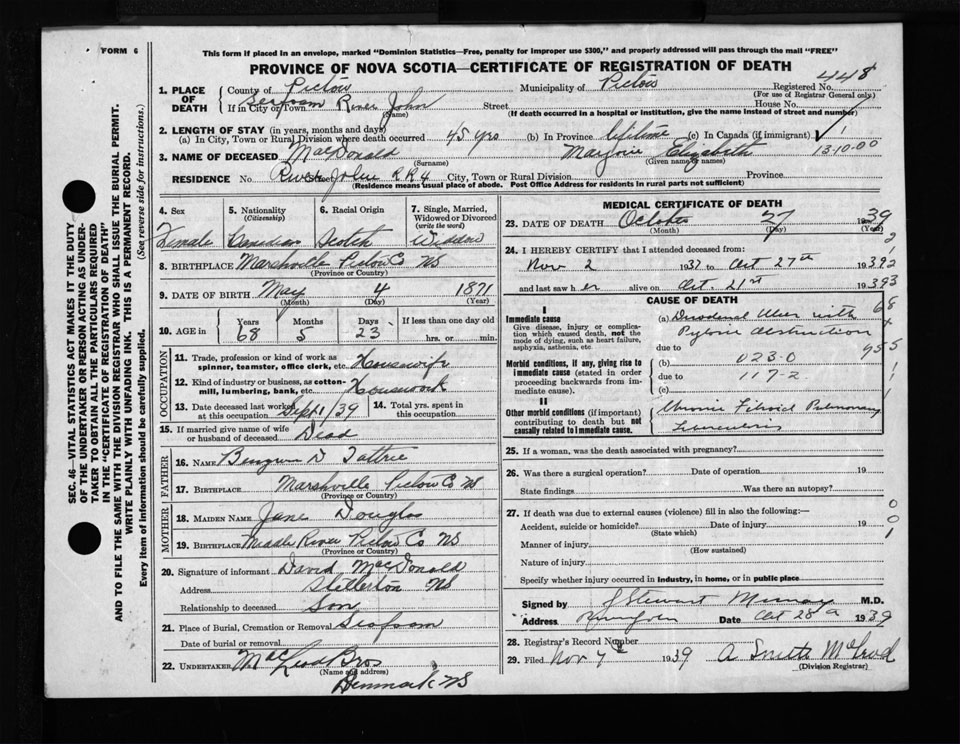 FORM 6
This form if placed in an envelope, marked "Dominion Statistics—Free, penalty for improper use $300," and properly addressed will pass through the mail "FREE"
PROVINCE OF NOVA SCOTIA—CERTIFICATE OF REGISTRATION OF DEATH
448
1. PLACE OF DEATH
County of Pictou
Municipality of Pictou
Registered No.
(For use of Registrar General only)
If in City or Town Seafoam River John
(Name)
Street
House No.
(If death occurred in a hospital or institution, give the name instead of street and number)
2. LENGTH OF STAY (in years, months and days)
(a) In City, Town or Rural Division where death occurred 45 yrs (b) In Province lifetime (c) In Canada (if immigrant)
3. NAME OF DECEASED MacDonald Marjorie Elizabeth
13-10-00
(Surname) (Given name or names)
RESIDENCE No. River John RR4 City, Town or Rural Division Province
(Residence means usual place of abode. Post Office Address for residents in rural parts not sufficient)
4. Sex
5. Nationality
(Citizenship)
6. Racial Origin
7. Single, Married, Widowed or Divorced
(write the word)
Female Canadian Scotch Widdow
8. BIRTHPLACE Marshville Pictou Co NS
(Province or Country)
9. DATE OF BIRTH May 4 1871
(Month) (Day) (Year)
10. AGE in
Years Months Days If less than one day old
68 5 23 hrs. or min.
OCCUPATION
11. Trade, profession or kind of work as spinner, teamster, office clerk, etc. Housewife
12. Kind of industry or business, as cotton-mill, lumbering, bank, etc. Housework
13. Date deceased last worked at this occupation Sept 1/39
14. Total yrs. spent in this occupation
15. If married give name of wife or husband of deceased Dead
FATHER
16. NAME D Tattrie
17. BIRTHPLACE Marshville Pictou Co NS
(Province or Country)
MOTHER
18. MAIDEN NAME Jane Douglas
19. BIRTHPLACE River Pictou Co NS
(Province or Country)
20. Signature of informant David MacDonald
Address Stellarton NS
Relationship to deceased Son
21. Place of Burial, Cremation or Removal Seafoam
Date of burial or removal
22. UNDERTAKER MacLeod Bros
(Name and address)
Denmark NS
MEDICAL CERTIFICATE OF DEATH
23. DATE OF DEATH October 27 1939
(Month) (Day) (Year)
24. I HEREBY CERTIFY that I attended deceased from:
Nov 2 1937 to Oct 27th 1939
and last saw her alive on Oct. 21st 1939
CAUSE OF DEATH
I
Immediate cause
Give disease, injury or complication which caused death, not the mode of dying, such as heart failure, asphyxia, asthenia, etc.
(a) Duodenal Ulcer with
Pyloric obstruction
due to
Morbid conditions, if any, giving rise to immediate cause (stated in order proceeding backwards from immediate cause).
(b) 023-0
due to 117-2
(c)
II
Other morbid conditions (if important) contributing to death but not causally related to immediate cause.
Chronic Fibroid Pulmonary
Tuberculosis
25. If a woman, was the death associated with pregnancy?
26. Was there a surgical operation? Date of operation 19
State findings Was there an autopsy?
27. If death was due to external causes (violence) fill in also the following:—
Accident, suicide or homicide? Date of injury 19
(State which)
Manner of injury
(How sustained)
Nature of injury
Specify whether injury occurred in industry, in home, or in public place
Signed by J Stewart Murray M.D.
Address Date Oct 28 1939
28. Registrar's Record Number
29. Filed Nov 7 1939 A Smith McLeod
(Division Registrar)
SEC. 46—VITAL STATISTICS ACT MAKES IT THE DUTY
OF THE UNDERTAKER OR PERSON ACTING AS UNDER-
TAKER TO OBTAIN ALL THE PARTICULARS REQUIRED
IN THE "CERTIFICATE OF REGISTRATION OF DEATH"
AND TO FILE THE SAME WITH THE DIVISION REGISTRAR WHO SHALL ISSUE THE BURIAL PERMIT.
WRITE PLAINLY WITH UNFADING INK. THIS IS A PERMANENT RECORD.
Every item of information should be carefully supplied. (See reverse side for Instructions.)